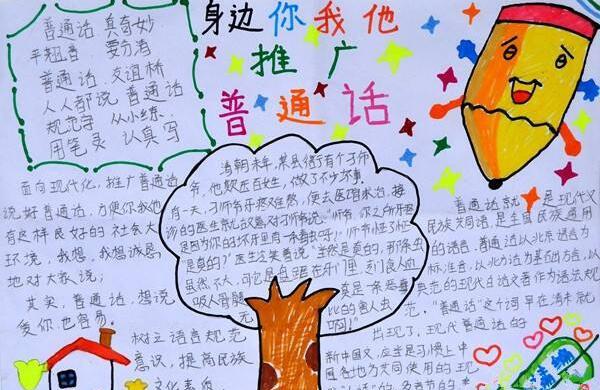 身边你我他
推广
普通话
普通话 真奇妙
平翘音 要分清
普通话 友谊桥
人人都说 普通话
规范字 从小练
用笔灵 认真写
面向现代化，推广普通话
说好普通话，方便你我他
有这样良好的社会大
环境，我想，我想诚恳
地对大家说：
其实，普通话，想说
爱你也容易。
树立语音规范
意识，提高民族
文化素质
清朝末年，某县衙有个刁师
爷，他欺压百姓，做了不少坏事。
有一天，刁师爷牙疼难忍，便去医
诊的医生就故意对刁师爷说："师爷，你之所以牙疼
是因为你的坏牙里有一条毒虫呀！"刁师爷
是真的？"医生冷笑着说："当然是真的，那条虫
虽然不大，可它是
吸人骨髓
无
其是一条恶毒
比的害人虫
啊！"
普通话就是现代汉
民族共同语，是全国民族通用
的语言。普通话以北京语音为
标准音，以北方话为基础方言，以
典范的现代白话文著作为语法规
范，"普通话"这个词早在清末就
出现了，现代普通话的
新中国文，应当是习惯上中
国各地为共同使用的现